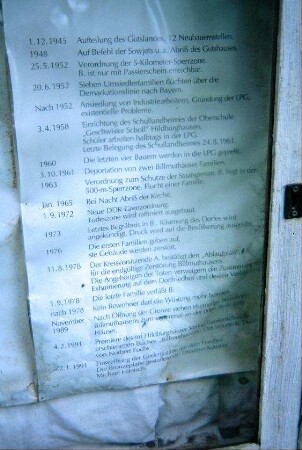 1.12.1945 Aufteilung des Gutslandes, 12 Neubauernstellen.
1948 Auf Befehl der Sowjets u.a. Abriß des Gutshauses.
25.5.1952 Verordnung der 5-Kilometer-Sperrzone.
B. ist nur mit Passierschein erreichbar.
20.6.1952 Sieben Umsiedlerfamilien flüchten über die
Demarkationslinie nach Bayern.
Nach 1952 Ansiedlung von Industriearbeitern, Gründung der LPG,
existentielle Probleme.
3.4.1958 Einrichtung des Schullandheimes der Oberschule
„Geschwister Scholl" Hildburghausen.
Schüler arbeiten halbtags in der LPG.
Letzte Belegung des Schullandheimes 24.8.1961.
1960 Die letzten vier Bauern werden in die LPG gepreßt.
3.10.1961 Deportation von zwei Billmuthäuser Familien.
1963 Verordnung zum Schutze der Staatsgrenze. B. liegt in der
500-m-Sperrzone. Flucht einer Familie.
Jan. 1965 Bei Nacht Abriß der Kirche.
1.9.1972 Neue DDR-Grenzordnung.
Todeszone wird raffiniert ausgebaut.
1973 Letztes Begräbnis in B., Räumung des Dorfes wird
angekündigt, Druck wird auf die Bevölkerung ausgeübt.
1976 Die ersten Familien geben auf,
ihre Gebäude werden zerstört.
11.8.1978 Der Kreisvorsitzende A. bestätigt den
für die endgültige Zerstörung Billmuthausens.
Die Angehörigen der Toten verweigern die Zustimmung
auf dem Dorffriedhof und dessen
1.9.1978 Die letzte Familie verläßt B.
nach 1978 Kein Bewohner darf die Wüstung mehr betreten.
November Nach Öffnung der Grenze
1989 Billmuthausens zum
Häuser.
4.2.1991 Premiere des im
erschienenen Buches „Billmuthausen
von Norbert Fuchs
22.1.1991 Einweihung der Gedenkstätte auf dem Friedhof.
Die Bronzeplatte